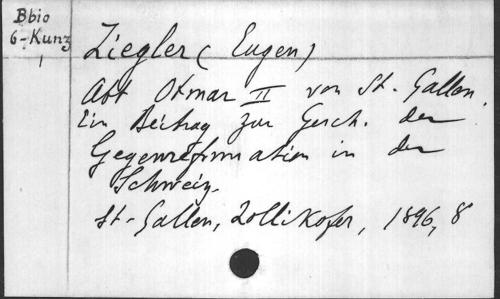 Bbio
6-Kunz
1
Ziegler (Eugen)
Abt Otmar II von St. Gallen.
Ein Beitrag zur Gesch. der
Gegenreformation in der
Schweiz.
St-Gallen, Zollikofer, 1896, 8